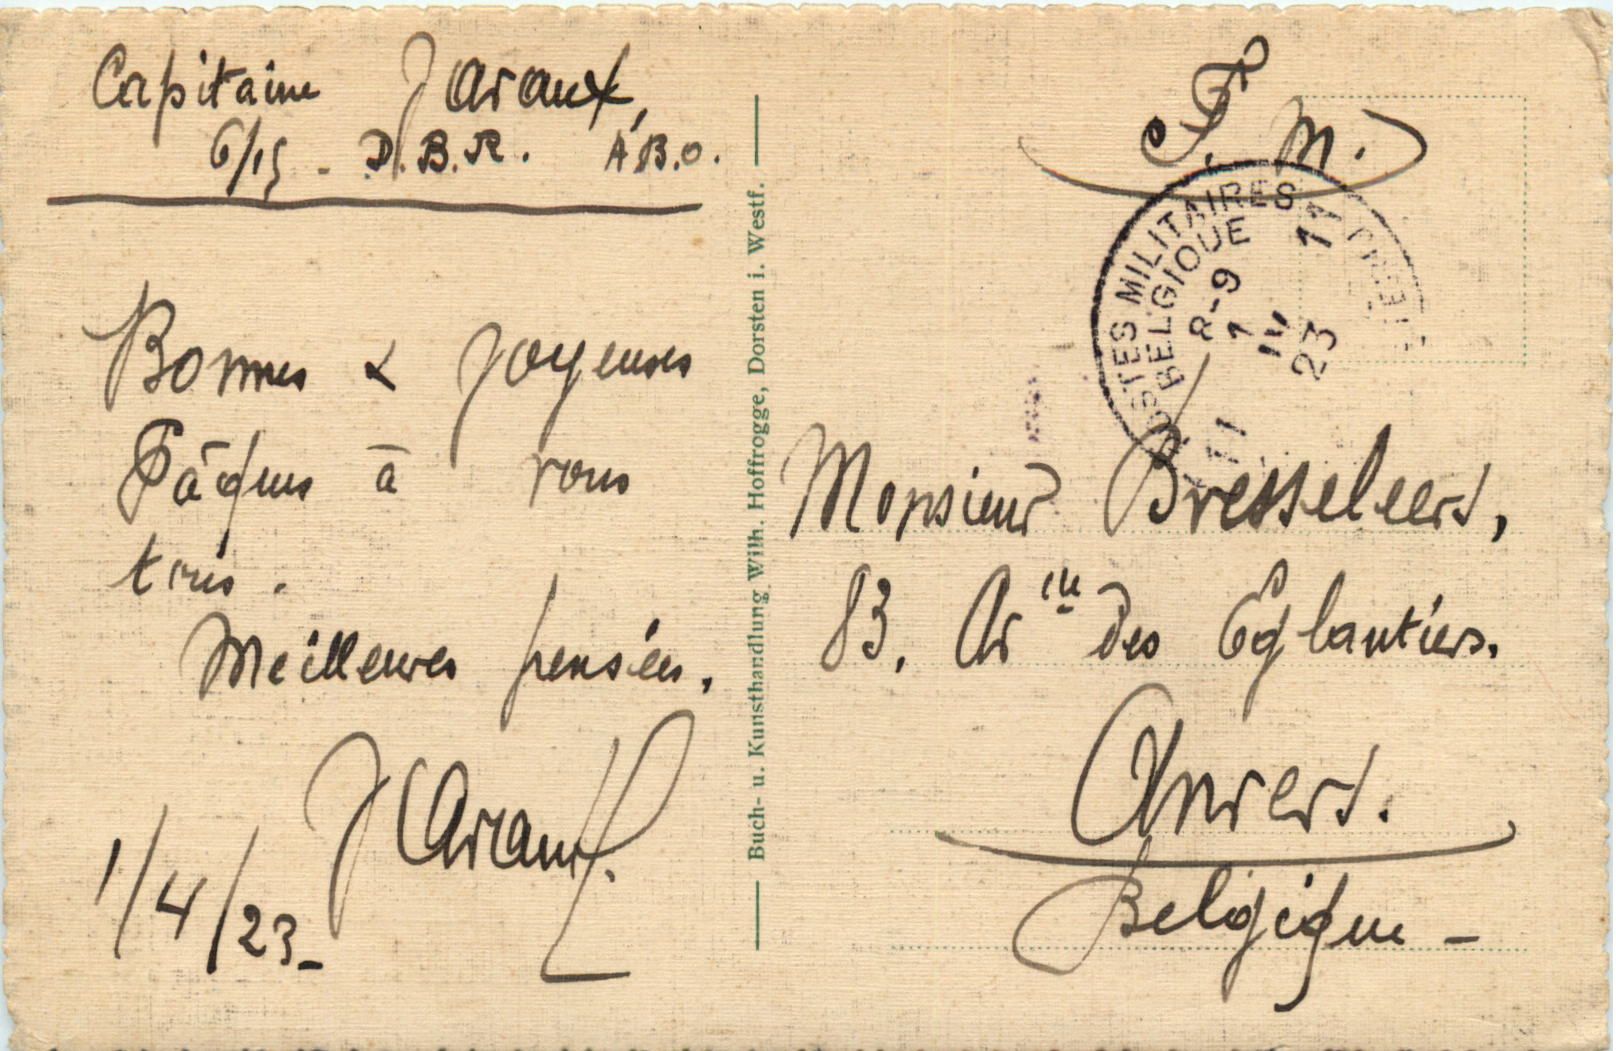 Capitaine Jaraux,
6/15 - D.B.R. A.B.O.
Bonnes & Joyeuses
Pâques à vous
tous.
Meilleures pensées,
J Araux.
1/4/23-
Buch- u. Kunsthandlung Wilh. Hoffrogge, Dorsten i. Westf.
F. M.
POSTES MILITAIRES
BELGIQUE
11
8-9
1
IV
23
11
Monsieur Bresseleers,
83, Av ue des Eglantiers.
Anvers.
Belgique -